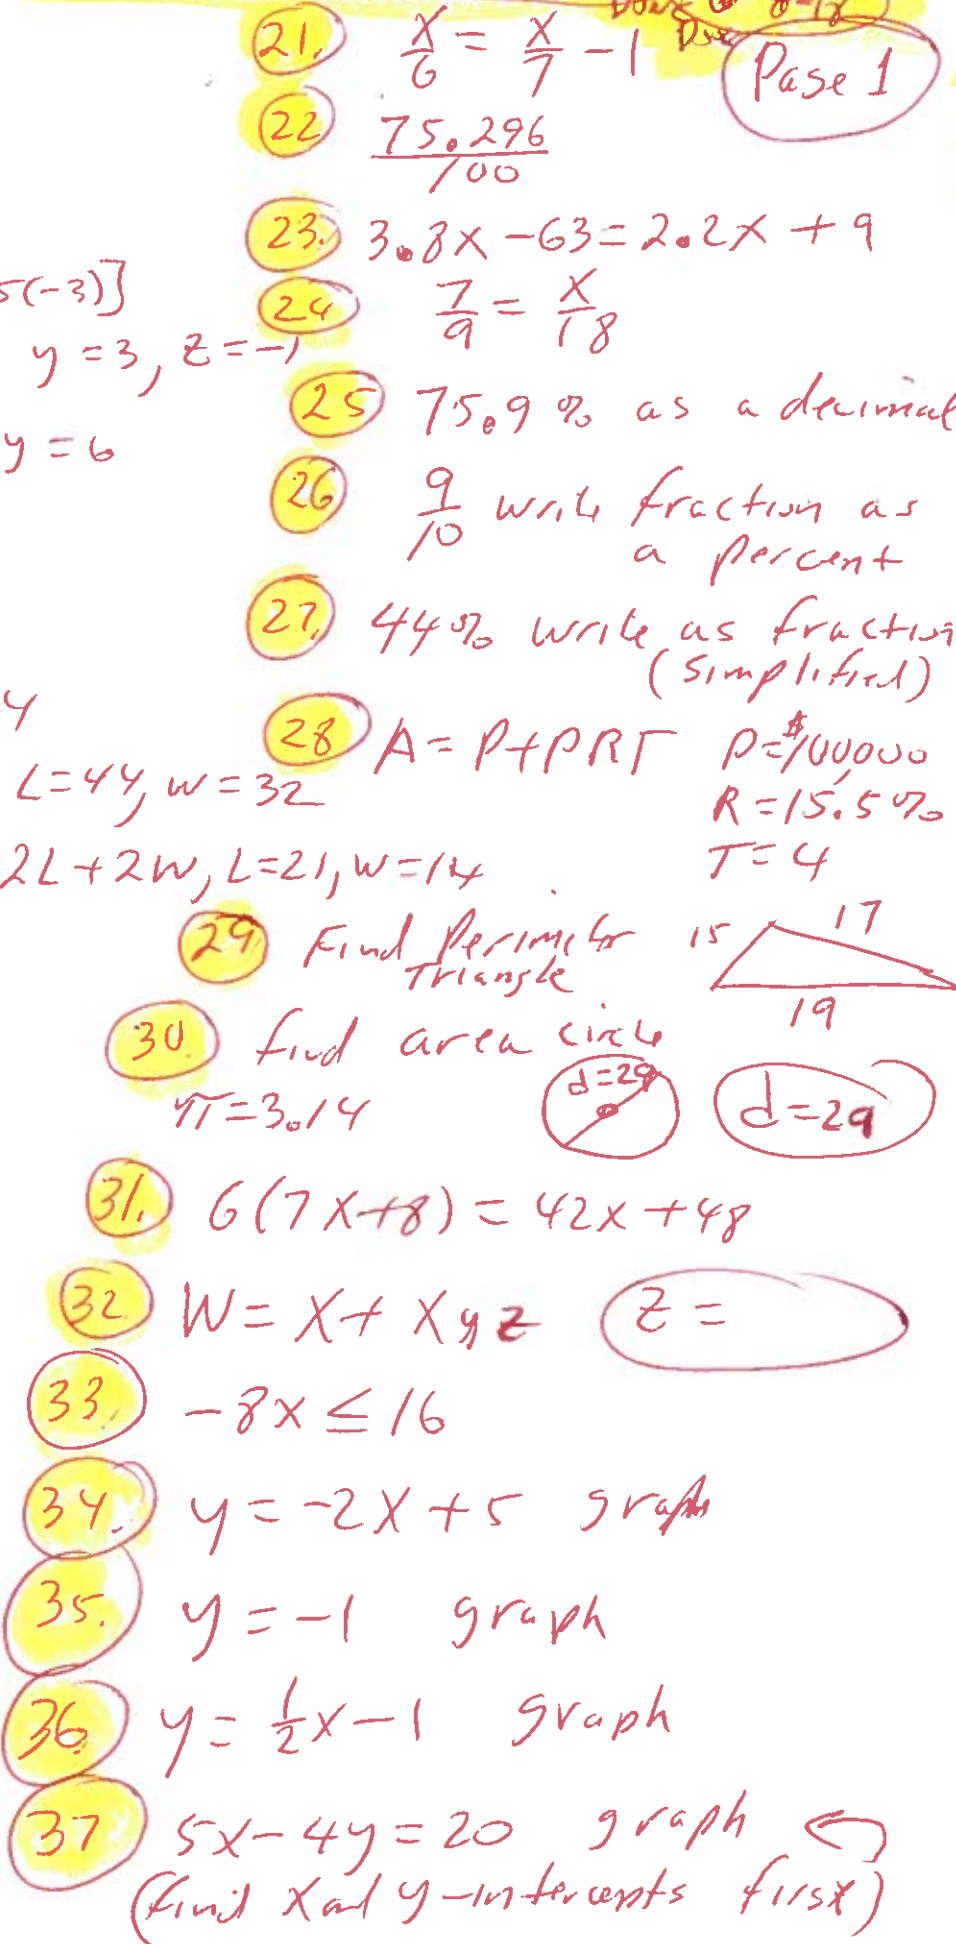 21. x/6 = x/7 - 1
Page 1
22 75.296/100
23. 3.8x - 63 = 2.2x + 9
5(-3)]
24 7/9 = x/18
y = 3, z = -1
25 75.9% as a decimal
y = 6
26 9/10 write fraction as
a percent
27. 44% write as fraction
(simplified)
4
28 A = P + PRT P = $100,000
L = 44, w = 32
R = 15.5%
T = 4
2L + 2W, L = 21, W = 14
29 Find Perimeter 15 17
Triangle
19
30. find area circle
d = 29
π = 3.14
d = 29
31. 6(7x + 8) = 42x + 48
32 W = x + xyz z =
33. -8x ≤ 16
34. y = -2x + 5 graph
35. y = -1 graph
36. y = 1/2x - 1 graph
37 5x - 4y = 20 graph
(find x and y-intercepts first)